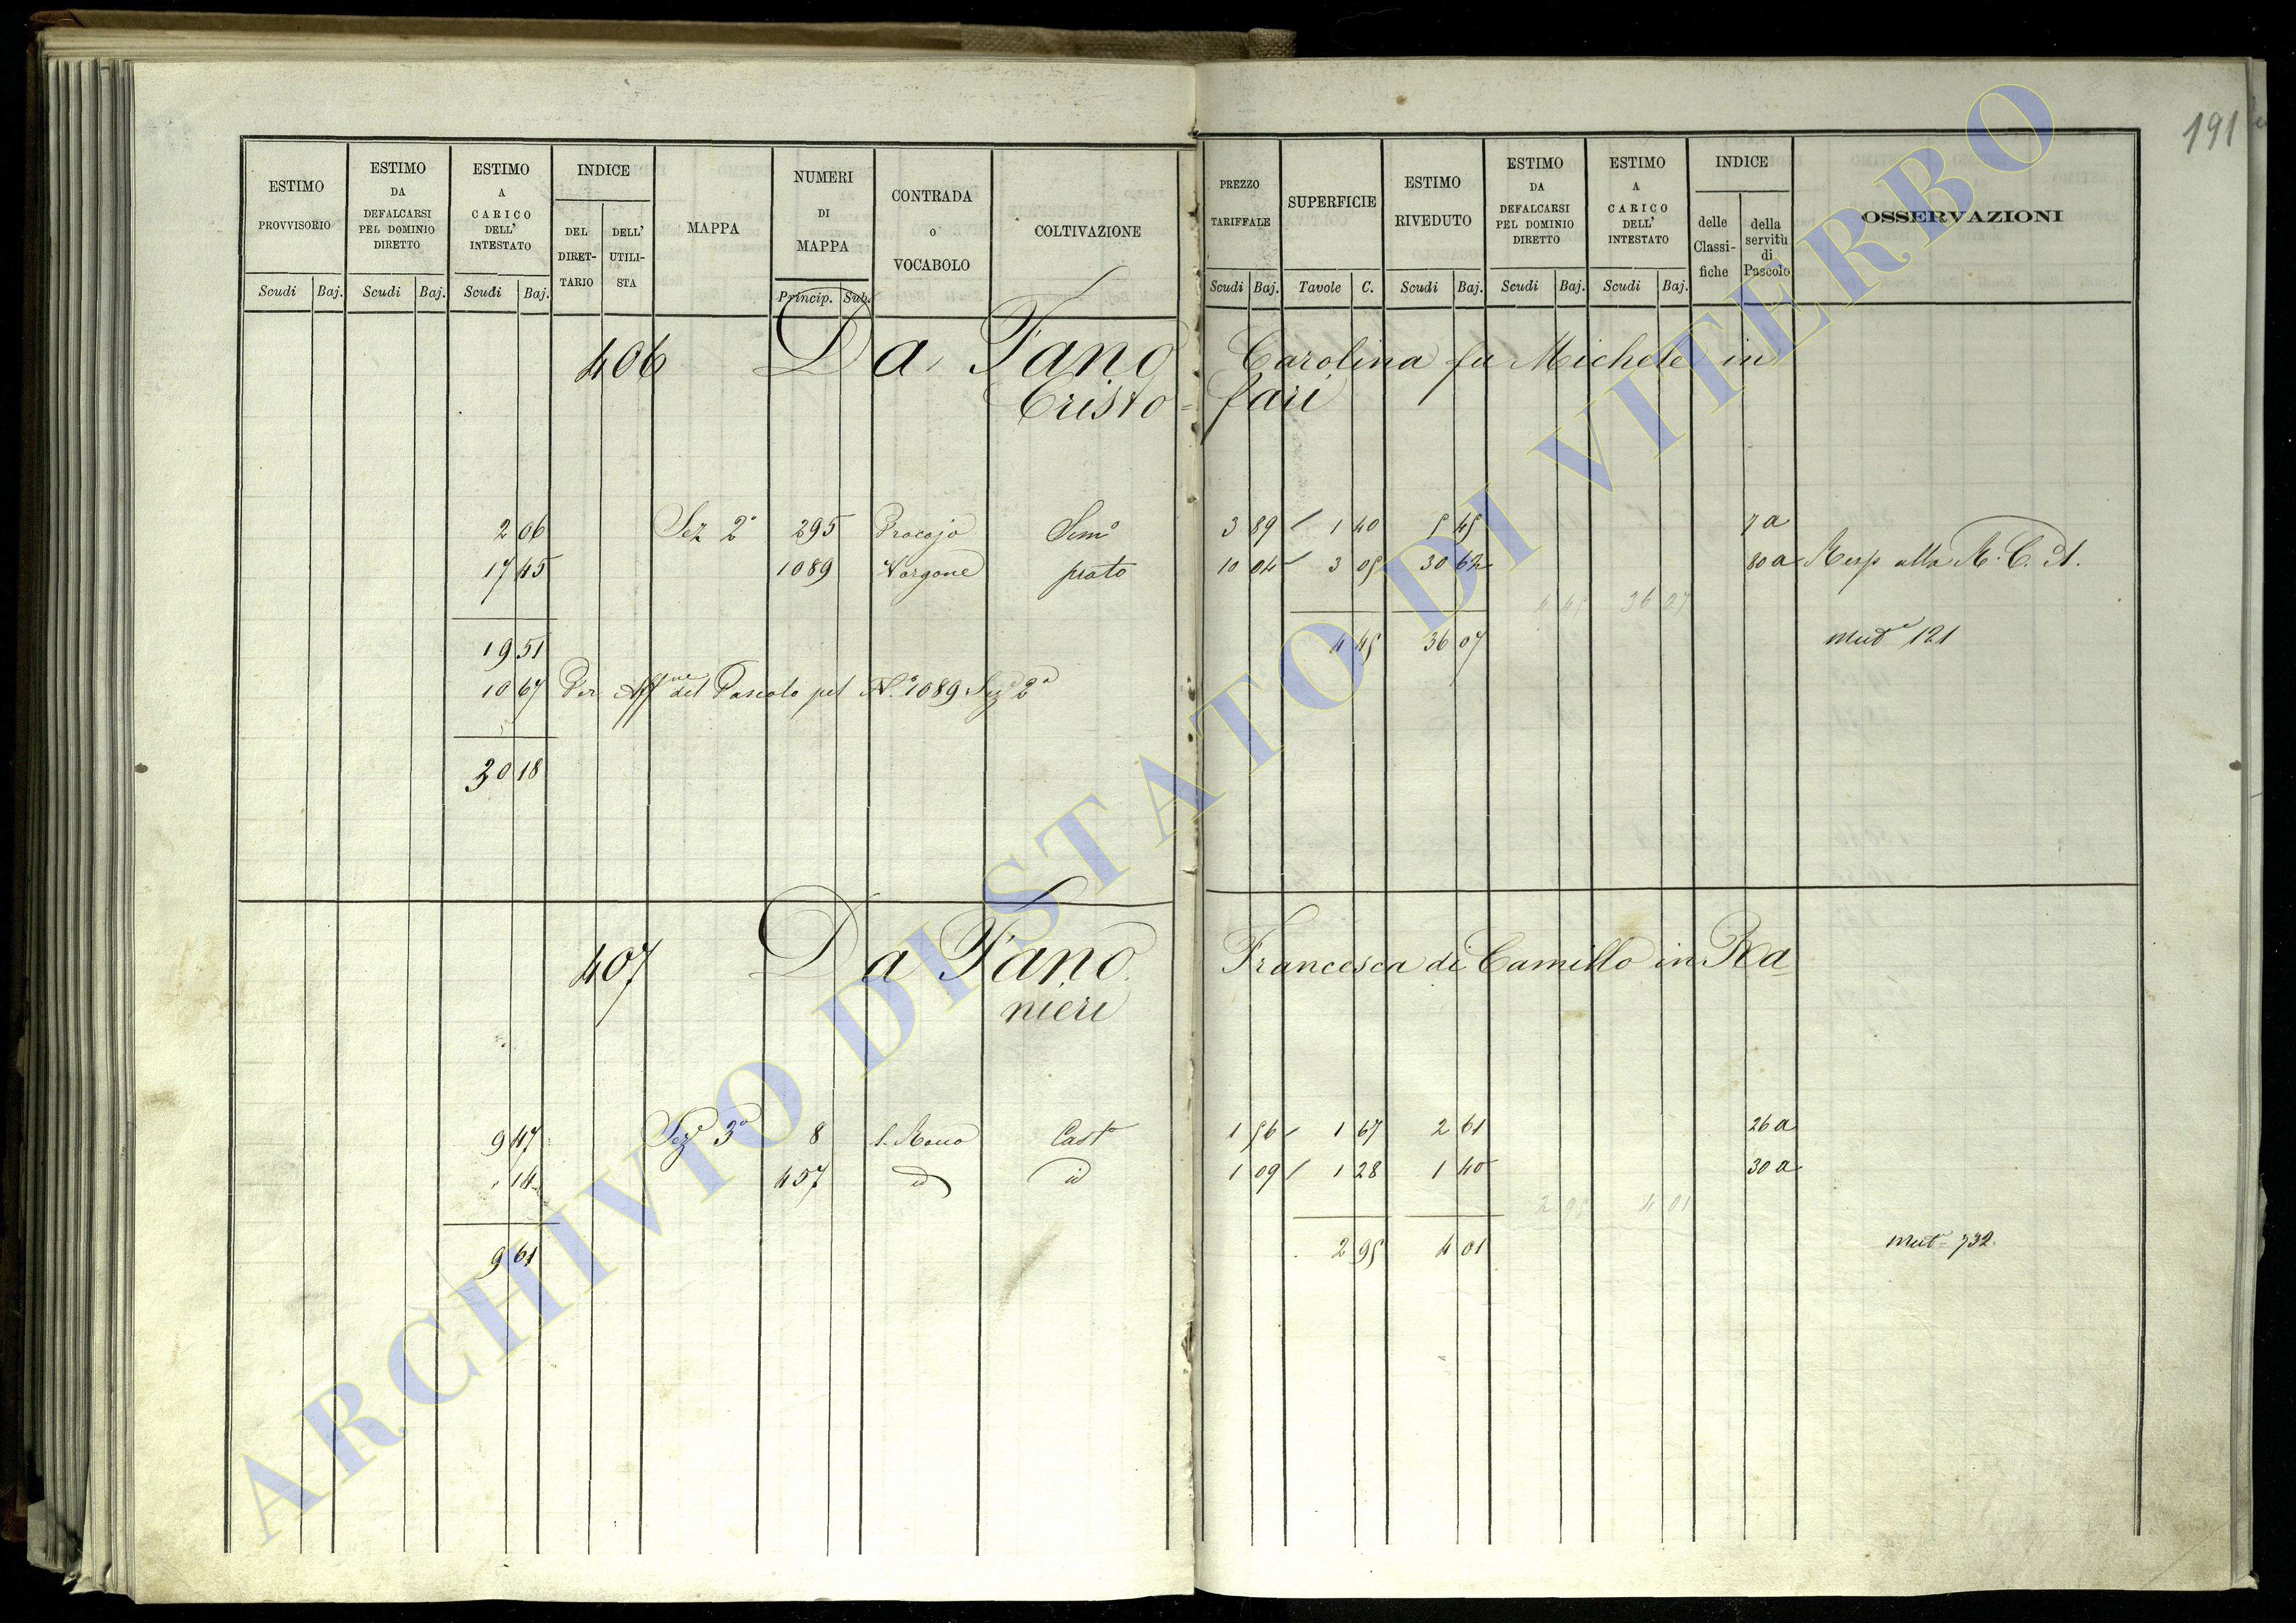 191
ESTIMO PROVVISORIO
ESTIMO DA DEFALCARSI PEL DOMINIO DIRETTO
ESTIMO A CARICO DELL' INTESTATO
INDICE
DEL DIRET-TARIO
DELL' UTILI-STA
MAPPA
NUMERI DI MAPPA
CONTRADA o VOCABOLO
COLTIVAZIONE
PREZZO TARIFFALE
SUPERFICIE
ESTIMO RIVEDUTO
ESTIMO DA DEFALCARSI PEL DOMINIO DIRETTO
ESTIMO A CARICO DELL' INTESTATO
INDICE
delle Classi-fiche
della servitù di Pascolo
OSSERVAZIONI
Scudi Baj. Scudi Baj. Scudi Baj. Princip. Sub. Scudi Baj. Tavole C. Scudi Baj. Scudi Baj. Scudi Baj.
406 Da Fano Carolina fu Michele in
Cristo= fari
2 06 Sez 2ª 295 Procojo Semo 3 89 1 40 5 45 7 a
17 45 1089 Vorgone prato 10 04 3 05 30 62 80 a Resp alla R. C. A.
4 45 36 07
19 51 4 45 36 07 mut 121
10 67 Per Affne del Pascolo pel N.° 1089 Sez 2ª
30 18
407 Da Fano Francesca di Camillo in Ra
nieri
9 47 Sez 3ª 8 S. Rocco Cast 1 56 1 67 2 61 26 a
14 457 id id 1 09 1 28 1 40 30 a
2 95 4 01
9 61 2 95 4 01 mut 732
ARCHIVIO DI STATO DI VITERBO